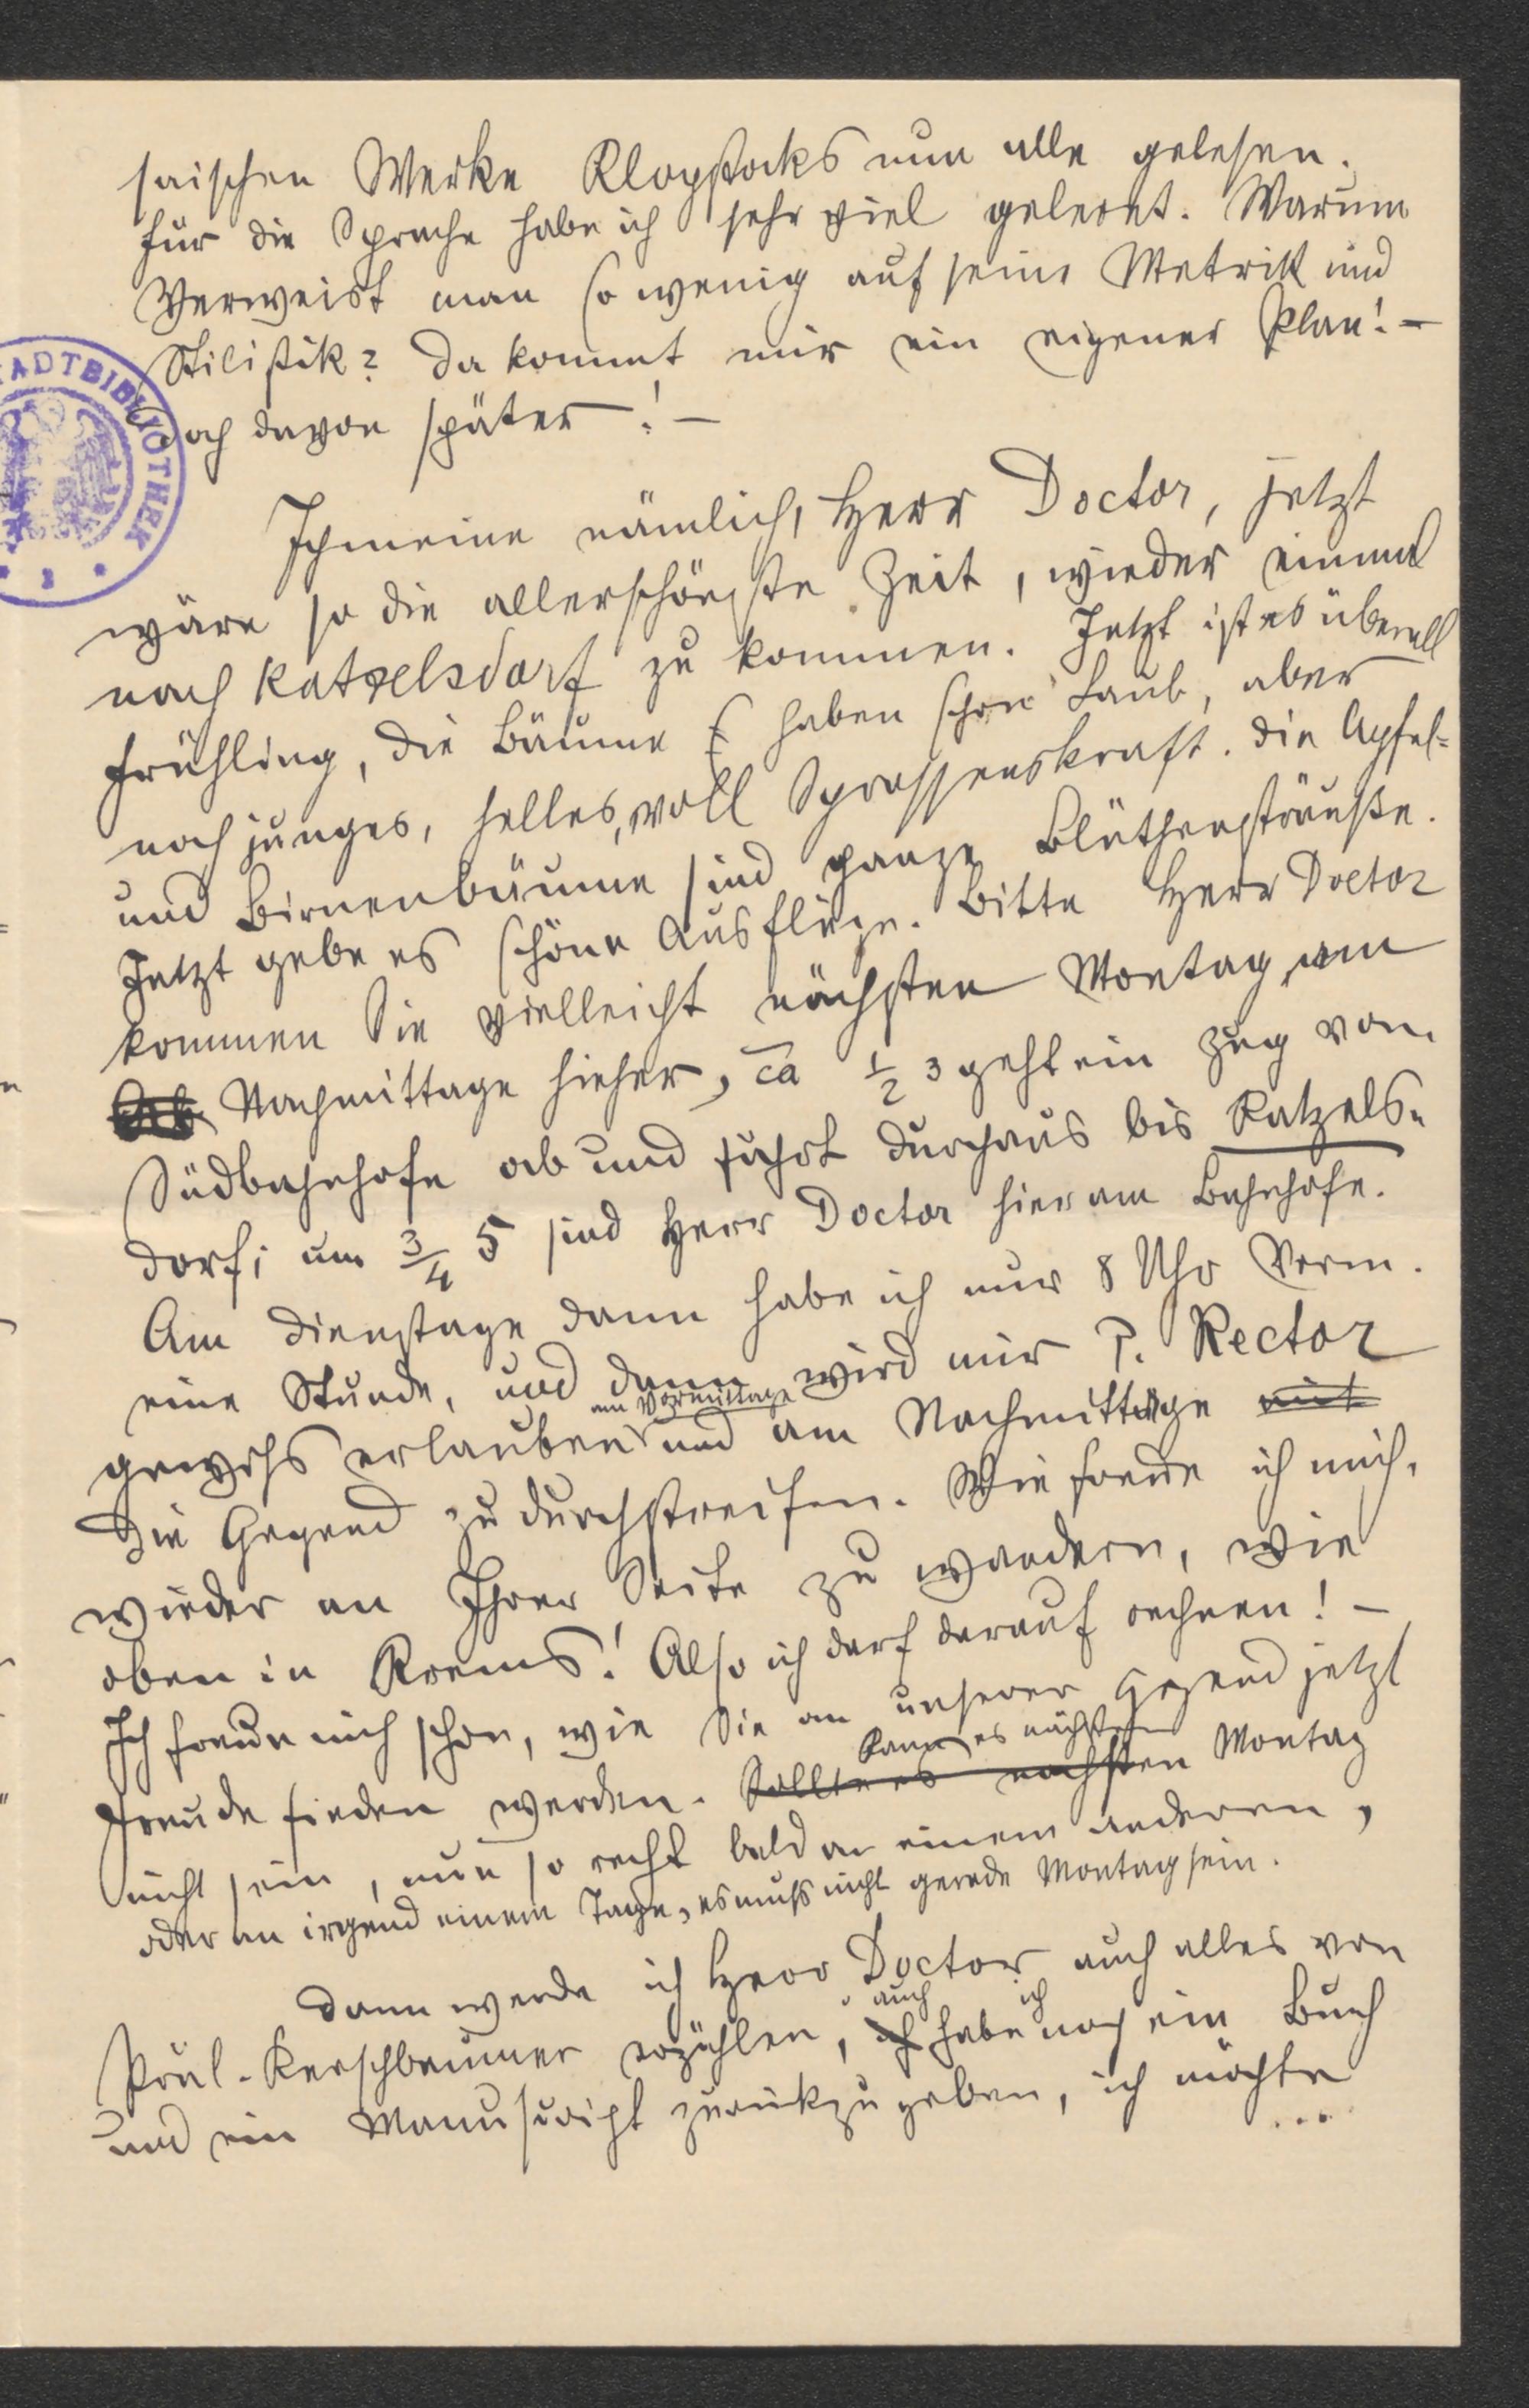 saischen Werke Klopstocks nun alle gelesen.
für die Sprache habe ich sehr viel gelernt. Warum
Verweist man so wenig auf seine Metrik und
Stilistik? Da kommt mir ein eigener Plan! –
Doch davon später! –
STADTBIBLIOTHEK
Ich meine nämlich, Herr Doctor, jetzt
wäre so die allerschönste Zeit, wieder einmal
nach Katzelsdorf zu kommen. Jetzt ist es überall
Frühling, die Bäume haben schon Laub, aber
noch junges, helles, voll Sprossenskraft. Die Apfel-
und Birnenbäume sind ganze Blüthensträuße.
Jetzt gebe es schöne Ausflüge. Bitte Herr Doctor
kommen Sie vielleicht nächsten Montag am
Nachmittage hieher, ca 1/2 3 geht ein Zug vom
Südbahnhofe ab und fährt durchaus bis Katzels-
dorf; um 3/4 5 sind Herr Doctor hier am Bahnhofe.
Am Dienstage dann habe ich nur 8 Uhr Vorm.
eine Stunde, und dann wird mir P. Rector
am Vormittage
gewiß erlauben und am Nachmittage mit
die Gegend zu durchstreifen. Wie freue ich mich,
wieder an Ihrer Seite zu wandern, wie
oben in Krems! Also ich darf darauf rechnen! –
Ich freue mich schon, wie Sie an unserer Gegend jetzt
kann es nächsten
Freude finden werden. Sollte es nächsten Montag
nicht sein, nun so recht bald an einem anderen,
oder an irgend einem Tage, es muß nicht gerade Montag sein.
Dann werde ich Herr Doctor auch alles von
auch ich
Präl. Kerschbaumer erzählen, ich habe noch ein Buch
und ein Manuscript zurückzugeben, ich möchte
...